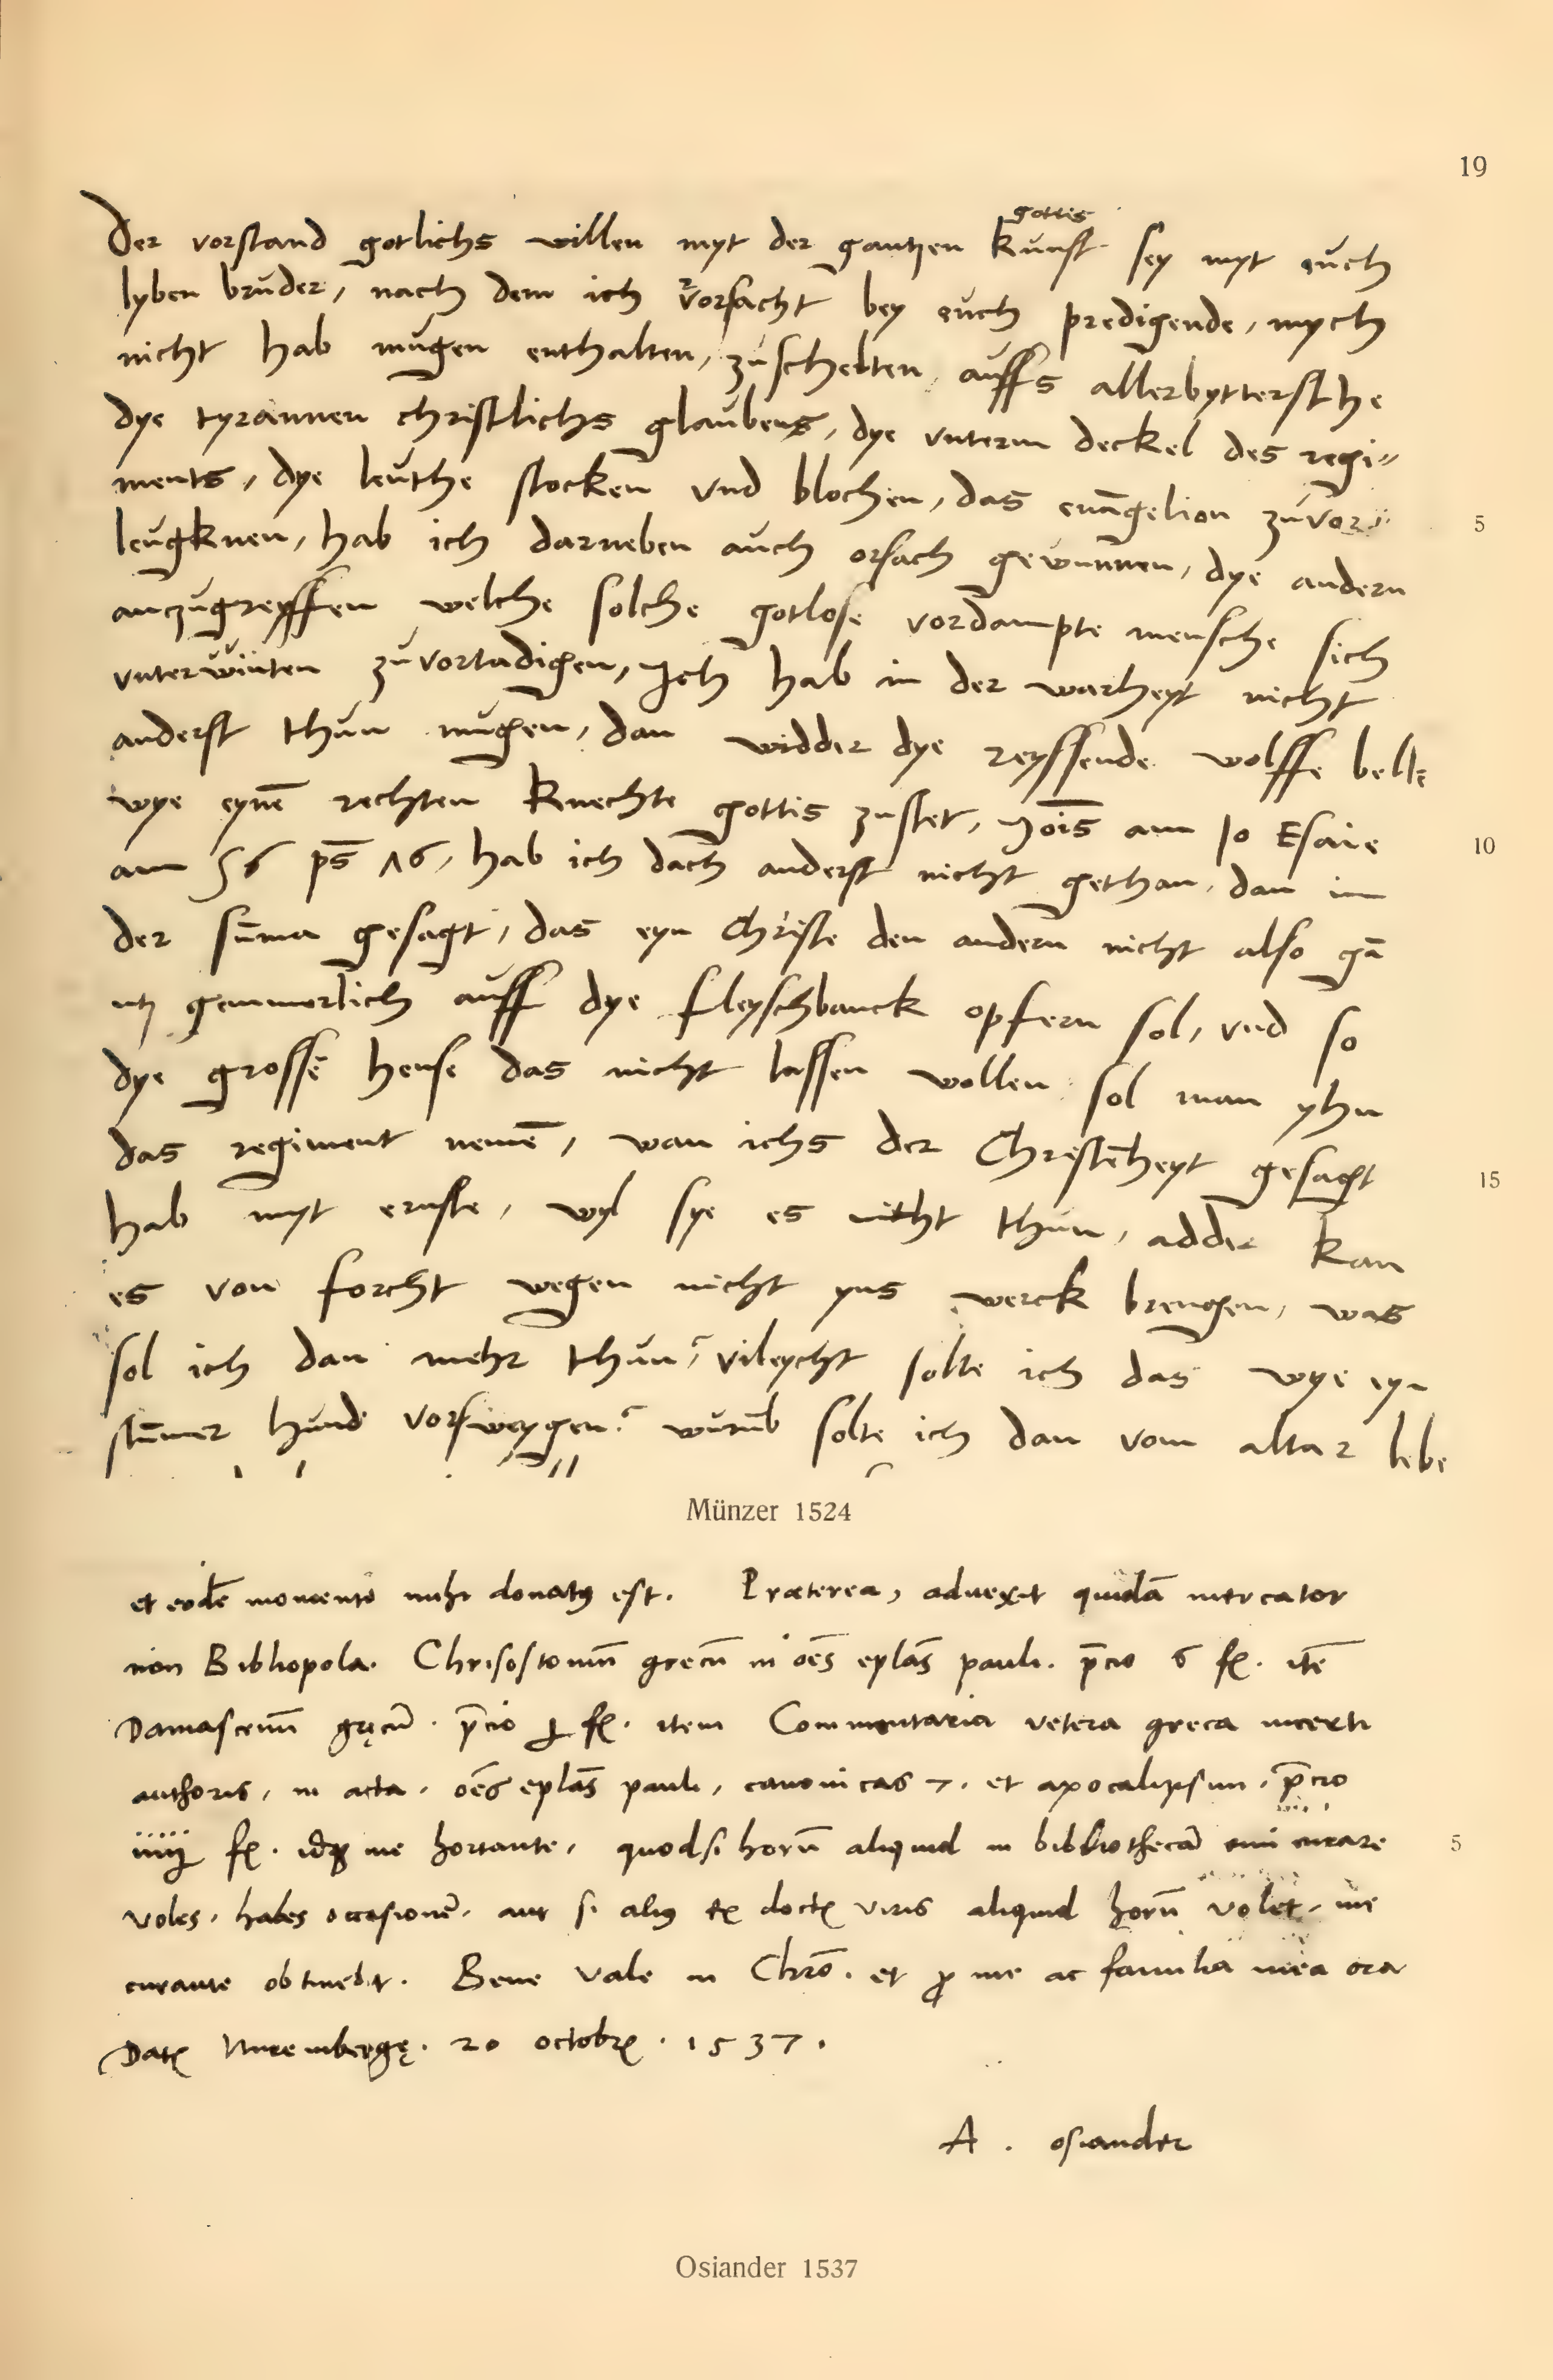 19
Der vorstand gotlichs willen myt der gantzen kunst gottis sey myt euch
lyben bruder, nach dem ich vorsacht bey euch predigende, mych
nicht hab mugen enthalten, zuschelten, auffs allerbyttersthe
dye tyrannen christlichs glaubens, dye vnterm deckel des regi=
ments, dye leuthe stocken vnd blochen, das euāgelion zuvor=
5
leugknen, hab ich darneben auch orsach gewunnen, dye andern
anzugreyffen welche solche gotlose vordampte mensche sich
vnterwinten zuvortadigen, Ich hab in der warheyt nicht
anderst thun mugen, dan widder dye reyssende wolffe belle
wye eynē rechten knechte gottis zustet, Jois am 10 Esaie
10
am 56 ps 16, hab ich dach anderst nicht gethan, dan in
der sūma gesagt, das eyn Christe den andern nicht also gā
ntz gemmerlich auff dye fleyschbanck opfern sol, vnd so
dye grossē hense das nicht lassen wollen sol man yhn
das regiment nemē, wan ichs der Christēheyt gesagt
15
hab myt ernste, wyl sye es nicht thun, adder kan
es von forcht wegen nicht yns werck brengen, was
sol ich dan mehr thun? vileycht solte ich das wye eyn
stūmer hund vorsweygen? wurūb solte ich dan vom altar lebe
Münzer 1524
et eodē momento mihi donatus est. Præterea, aduexit quidā mercator
non Bibliopola. Chrisostomū grecū in oēs eplās pauli. p̄cio 6 fl. itē
Damascenū gręcū. p̄cio j fl. item Commentaria vetera greca incerti
authoris, in acta. oēs eplās pauli, canonicas 7. et apocalipsim. p̄cio
iiij fl. idq me hortante, quodsi horū aliquid in bibliothecā emi curare
5
voles, habes occasionē. aut si alius ex doctis viris aliquid horū volet, me
curante obtinebit. Bene vale in Chrō. et p me ac familia mea ora
Datę Nurembergę. 20 octobris. 1537.
A. osiander
Osiander 1537